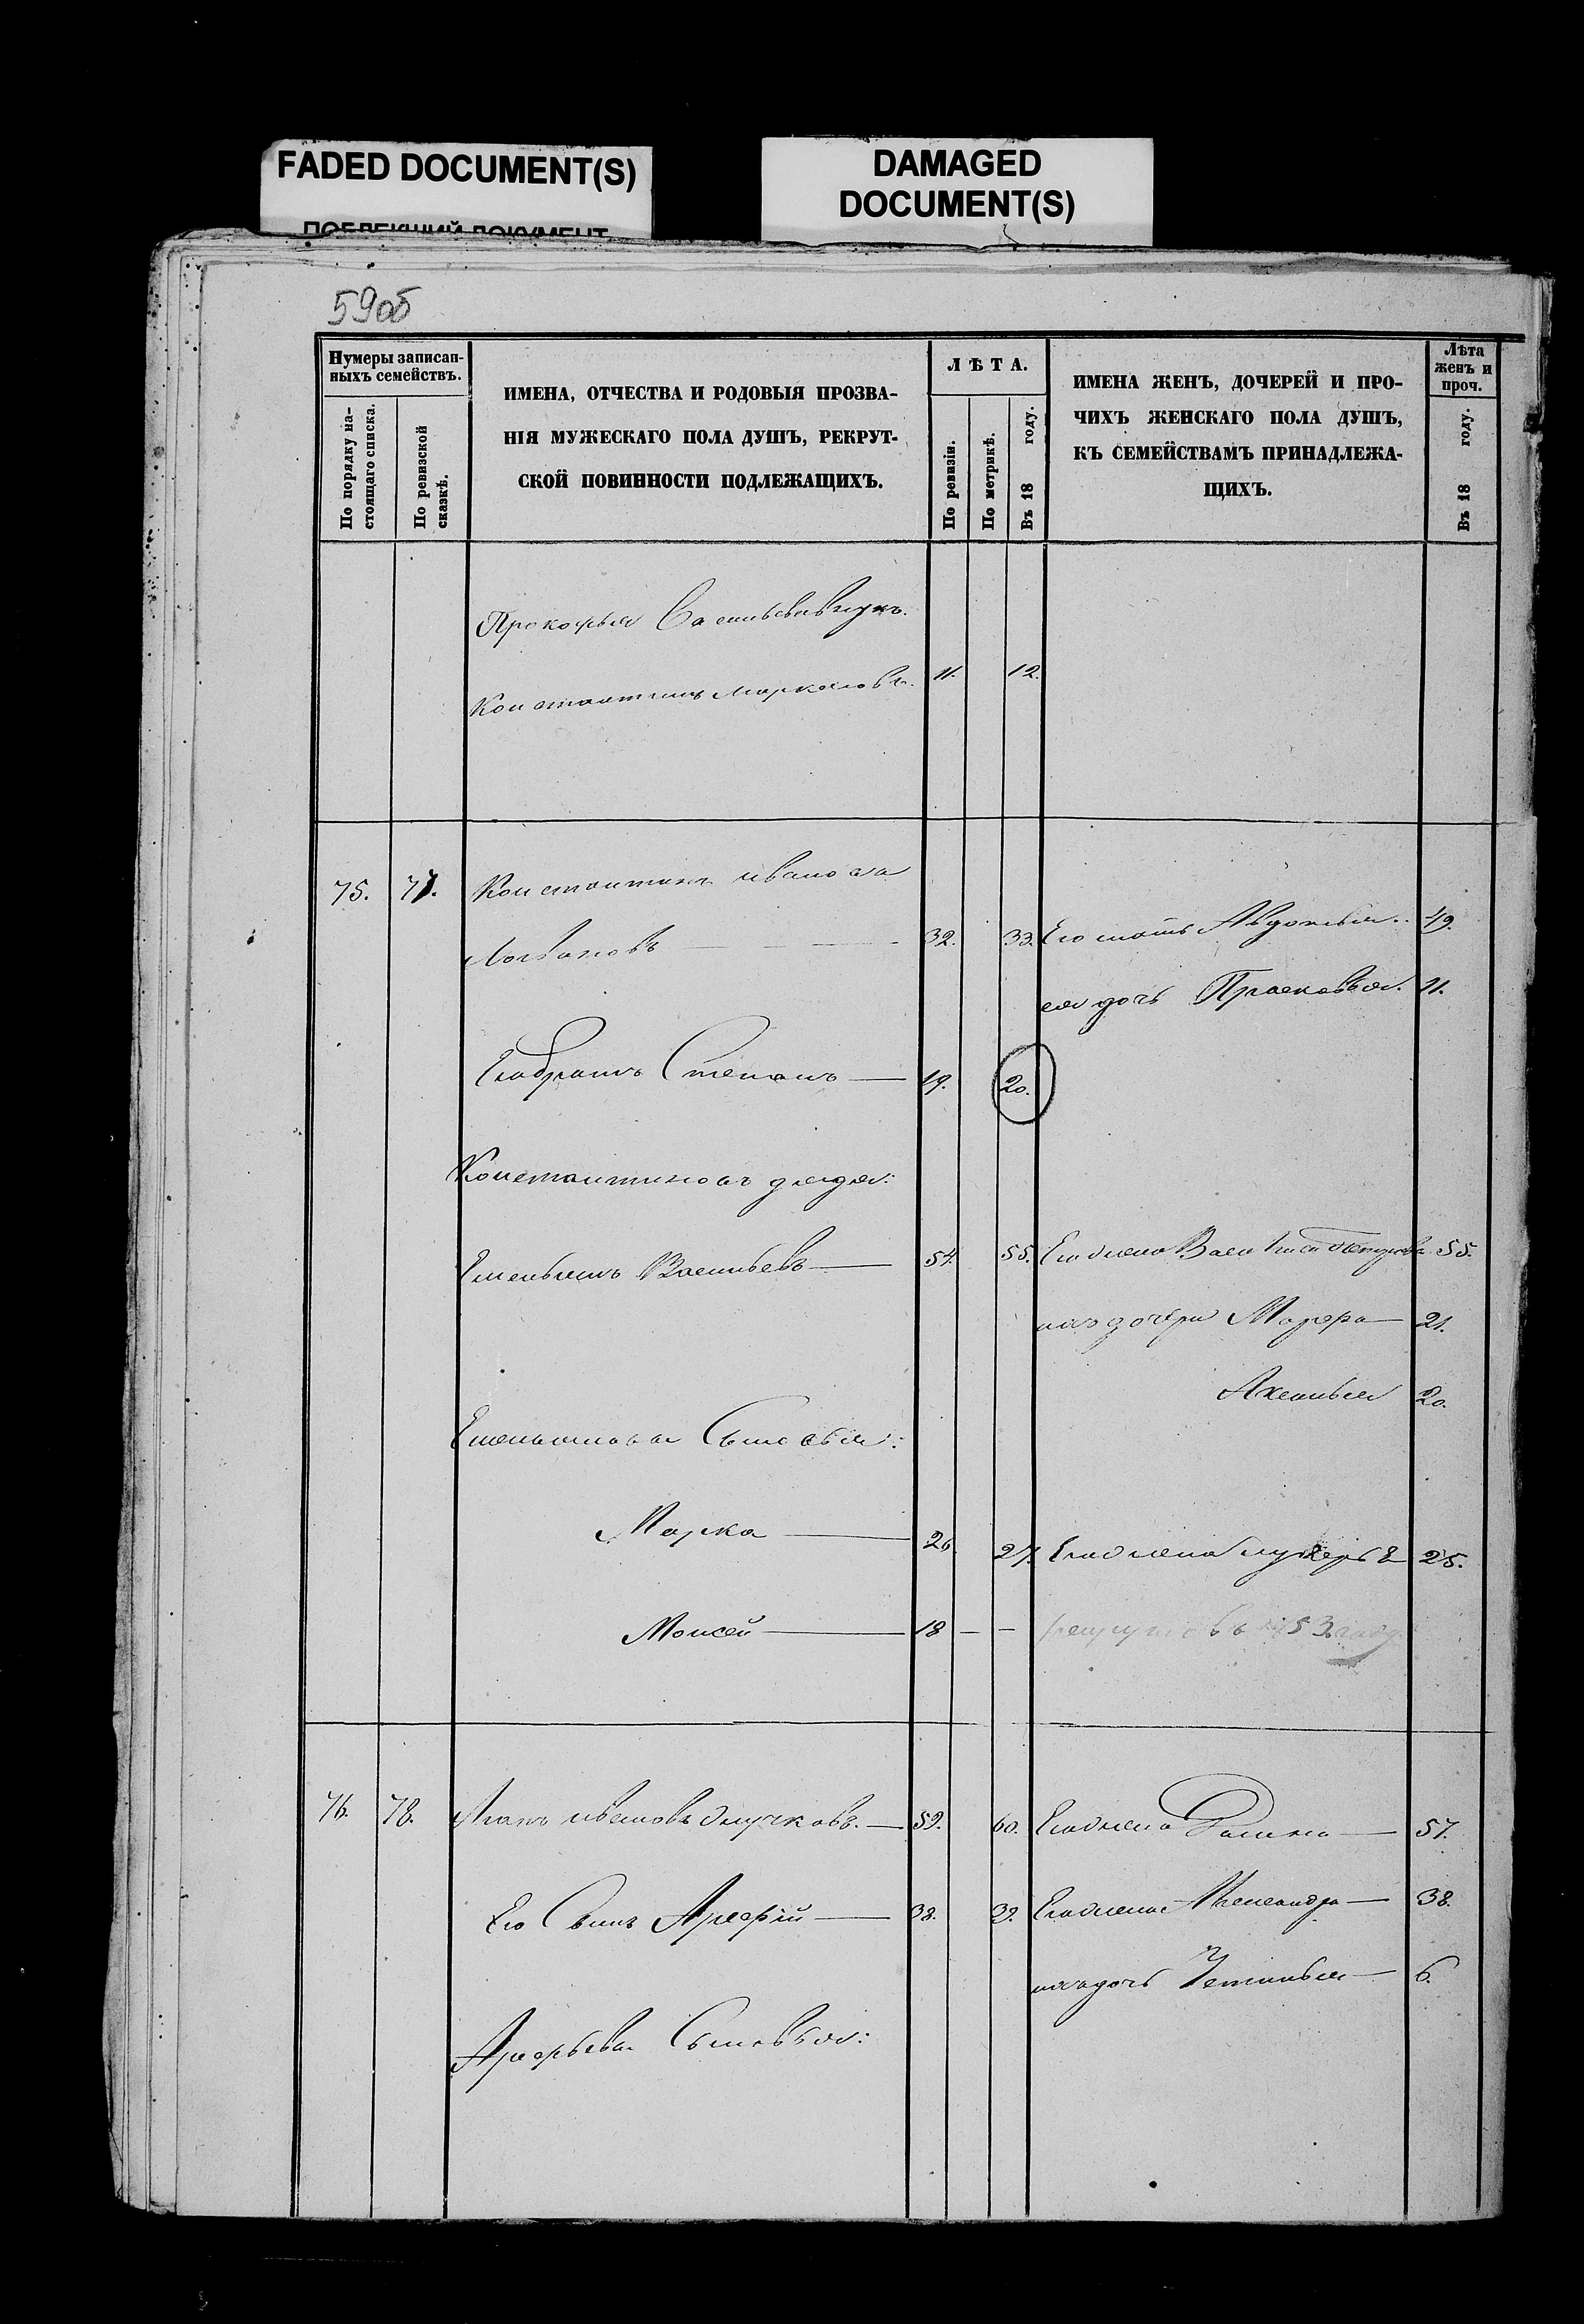 FADED DOCUMENT(S)
ПОБЛЕКШИЙ ДОКУМЕНТ
DAMAGED
DOCUMENT(S)
59об
Нумеры записан-
ныхъ семействъ.
По порядку на-
стоящаго списка.
По ревизской
сказкѣ.
ИМЕНА, ОТЧЕСТВА И РОДОВЫЯ ПРОЗВА-
НІЯ МУЖЕСКАГО ПОЛА ДУШЪ, РЕКРУТ-
СКОЙ ПОВИННОСТИ ПОДЛЕЖАЩИХЪ.
ЛѢТА.
По ревизіи.
По метрикѣ.
Въ 18 году.
ИМЕНА ЖЕНЪ, ДОЧЕРЕЙ И ПРО-
ЧИХЪ ЖЕНСКАГО ПОЛА ДУШЪ,
КЪ СЕМЕЙСТВАМЪ ПРИНАДЛЕЖА-
ЩИХЪ.
Лѣта
женъ и
проч.
Въ 18 году.
Прокофья Васильева внукъ.
Константинъ Маркеловъ. 11. 12.
75. 77. Константинъ Ивановъ
32. 33. Его мать Авдотья. 49.
ея дочь Прасковья. 11.
Его братъ Степанъ — 19. 20.
Константиновъ дядя:
Емельянъ Васильевъ — 54. 55. Его жена Василиса 55.
ихъ дочери Марфа — 21.
Аксинья 20.
Емельяновы Сыновья:
Марка — 26. 27. Его жена Лукерья 25.
Моисей — 18 — — рекрутъ въ 1853 году
76. 78. Иванов 59. 60. Его жена 57.
Его Сынъ Арефій — 38. 39. Его жена Александра — 38.
ихъ дочь Устинья — 6.
Арефьевы Сыновья: